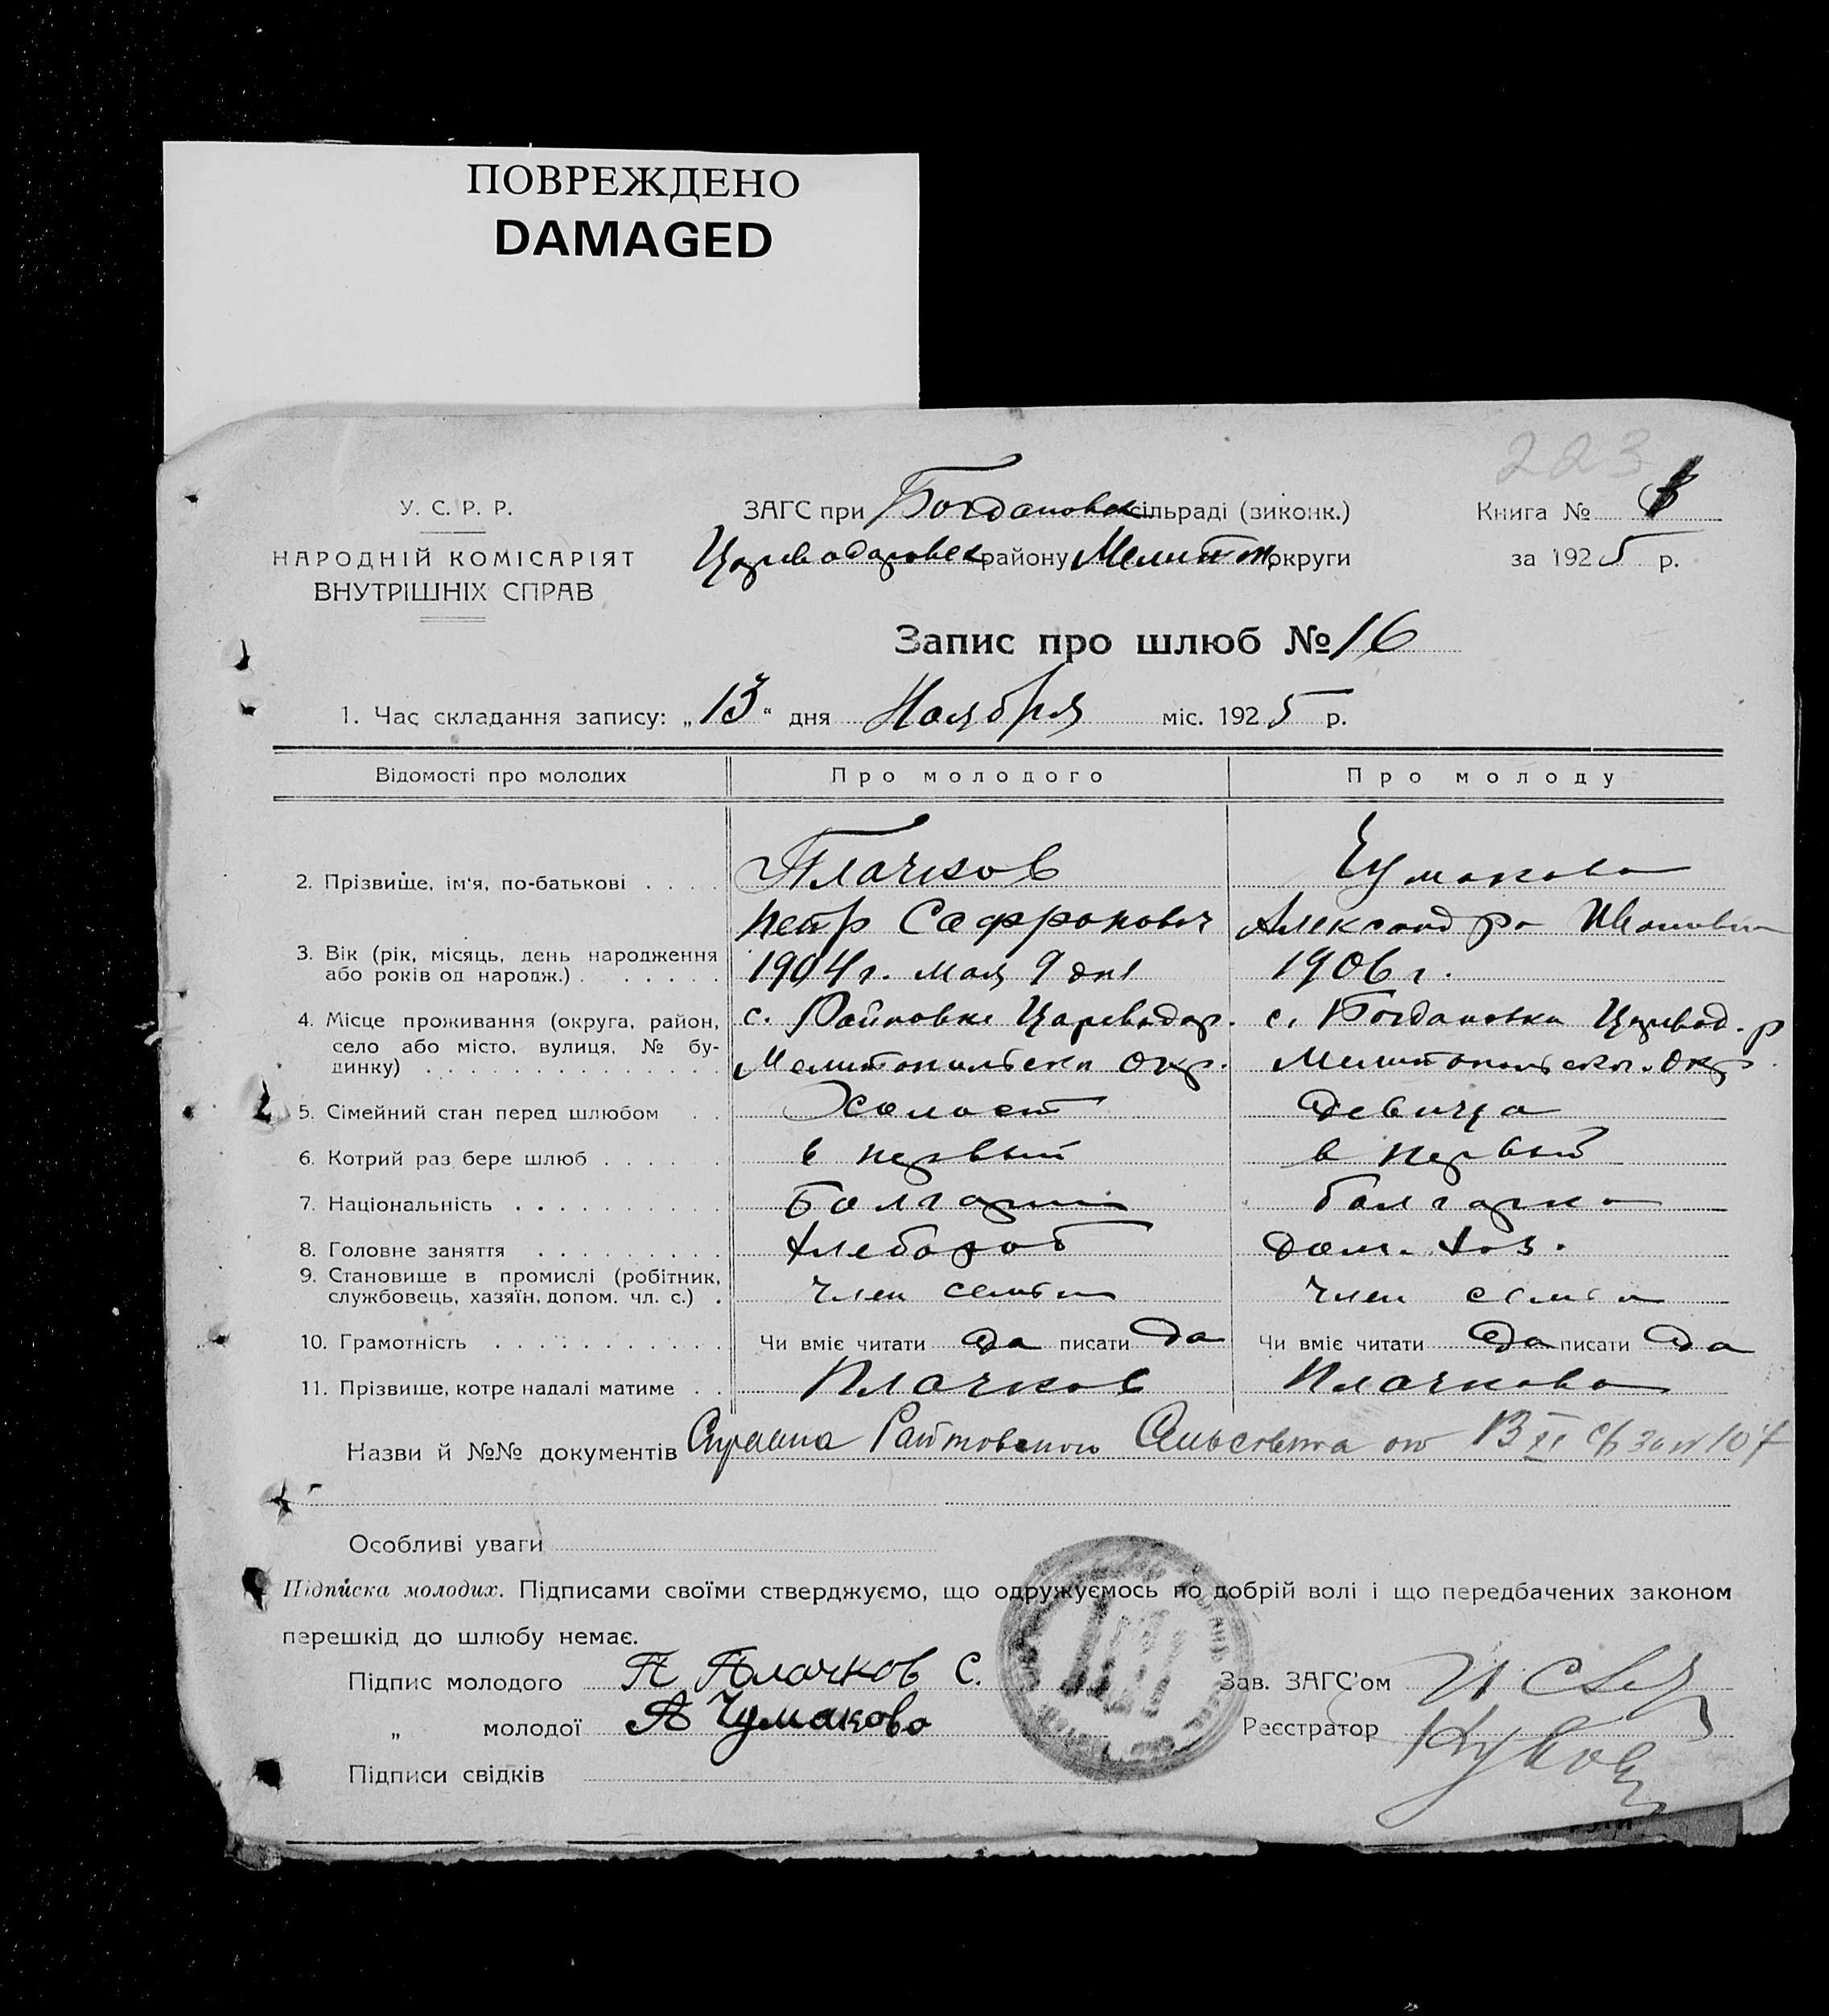 ПОВРЕЖДЕНО
DAMAGED
223
У. С. Р. Р.
НАРОДНІЙ КОМІСАРІЯТ
ВНУТРІШНІХ СПРАВ
ЗАГС при Богдановск сільраді (виконк.)
Цареводаровск району Мелитоп округи
Книга №
за 1925 р.
Запис про шлюб № 16
1. Час складання запису: „13“ дня Ноября міс. 1925 р.
Відомості про молодих Про молодого Про молоду
2. Прізвище, ім'я, по-батькові . . . . Плачков Чумакова
Петр Сафронович Александра Ивановна
3. Вік (рік, місяць, день народження
або років од народж.) . . . . . . 1904 г. мая 9 дня 1906 г.
4. Місце проживання (округа, район,
село або місто, вулиця, № бу-
динку) . . . . . . . . . . . . . .
с. Райновка Цареводар. с. Богдановка Царевод. р
Мелитопольска окр. Мелитопольск. окр
5. Сімейний стан перед шлюбом . . Холост Девица
6. Котрий раз бере шлюб . . . . . в первый в первый
7. Національність . . . . . . . . . Болгарин болгарка
8. Головне заняття . . . . . . . . . Хлебороб дом. хоз.
9. Становище в промислі (робітник,
службовець, хазяїн, допом. чл. с.) . член семьи член семьи
10. Грамотність . . . . . . . . . . . Чи вміє читати да писати да Чи вміє читати да писати да
11. Прізвище, котре надалі матиме . . Плачков Плачкова
Назви й №№ документів Справка Сельсовета от 13 XI 107
Особливі уваги
Підписка молодих. Підписами своїми стверджуємо, що одружуємось по добрій волі і що передбачених законом
перешкід до шлюбу немає.
Підпис молодого П Плачков С.
„ молодої А Чумакова
Підписи свідків
Зав. ЗАГС'ом
Реєстратор